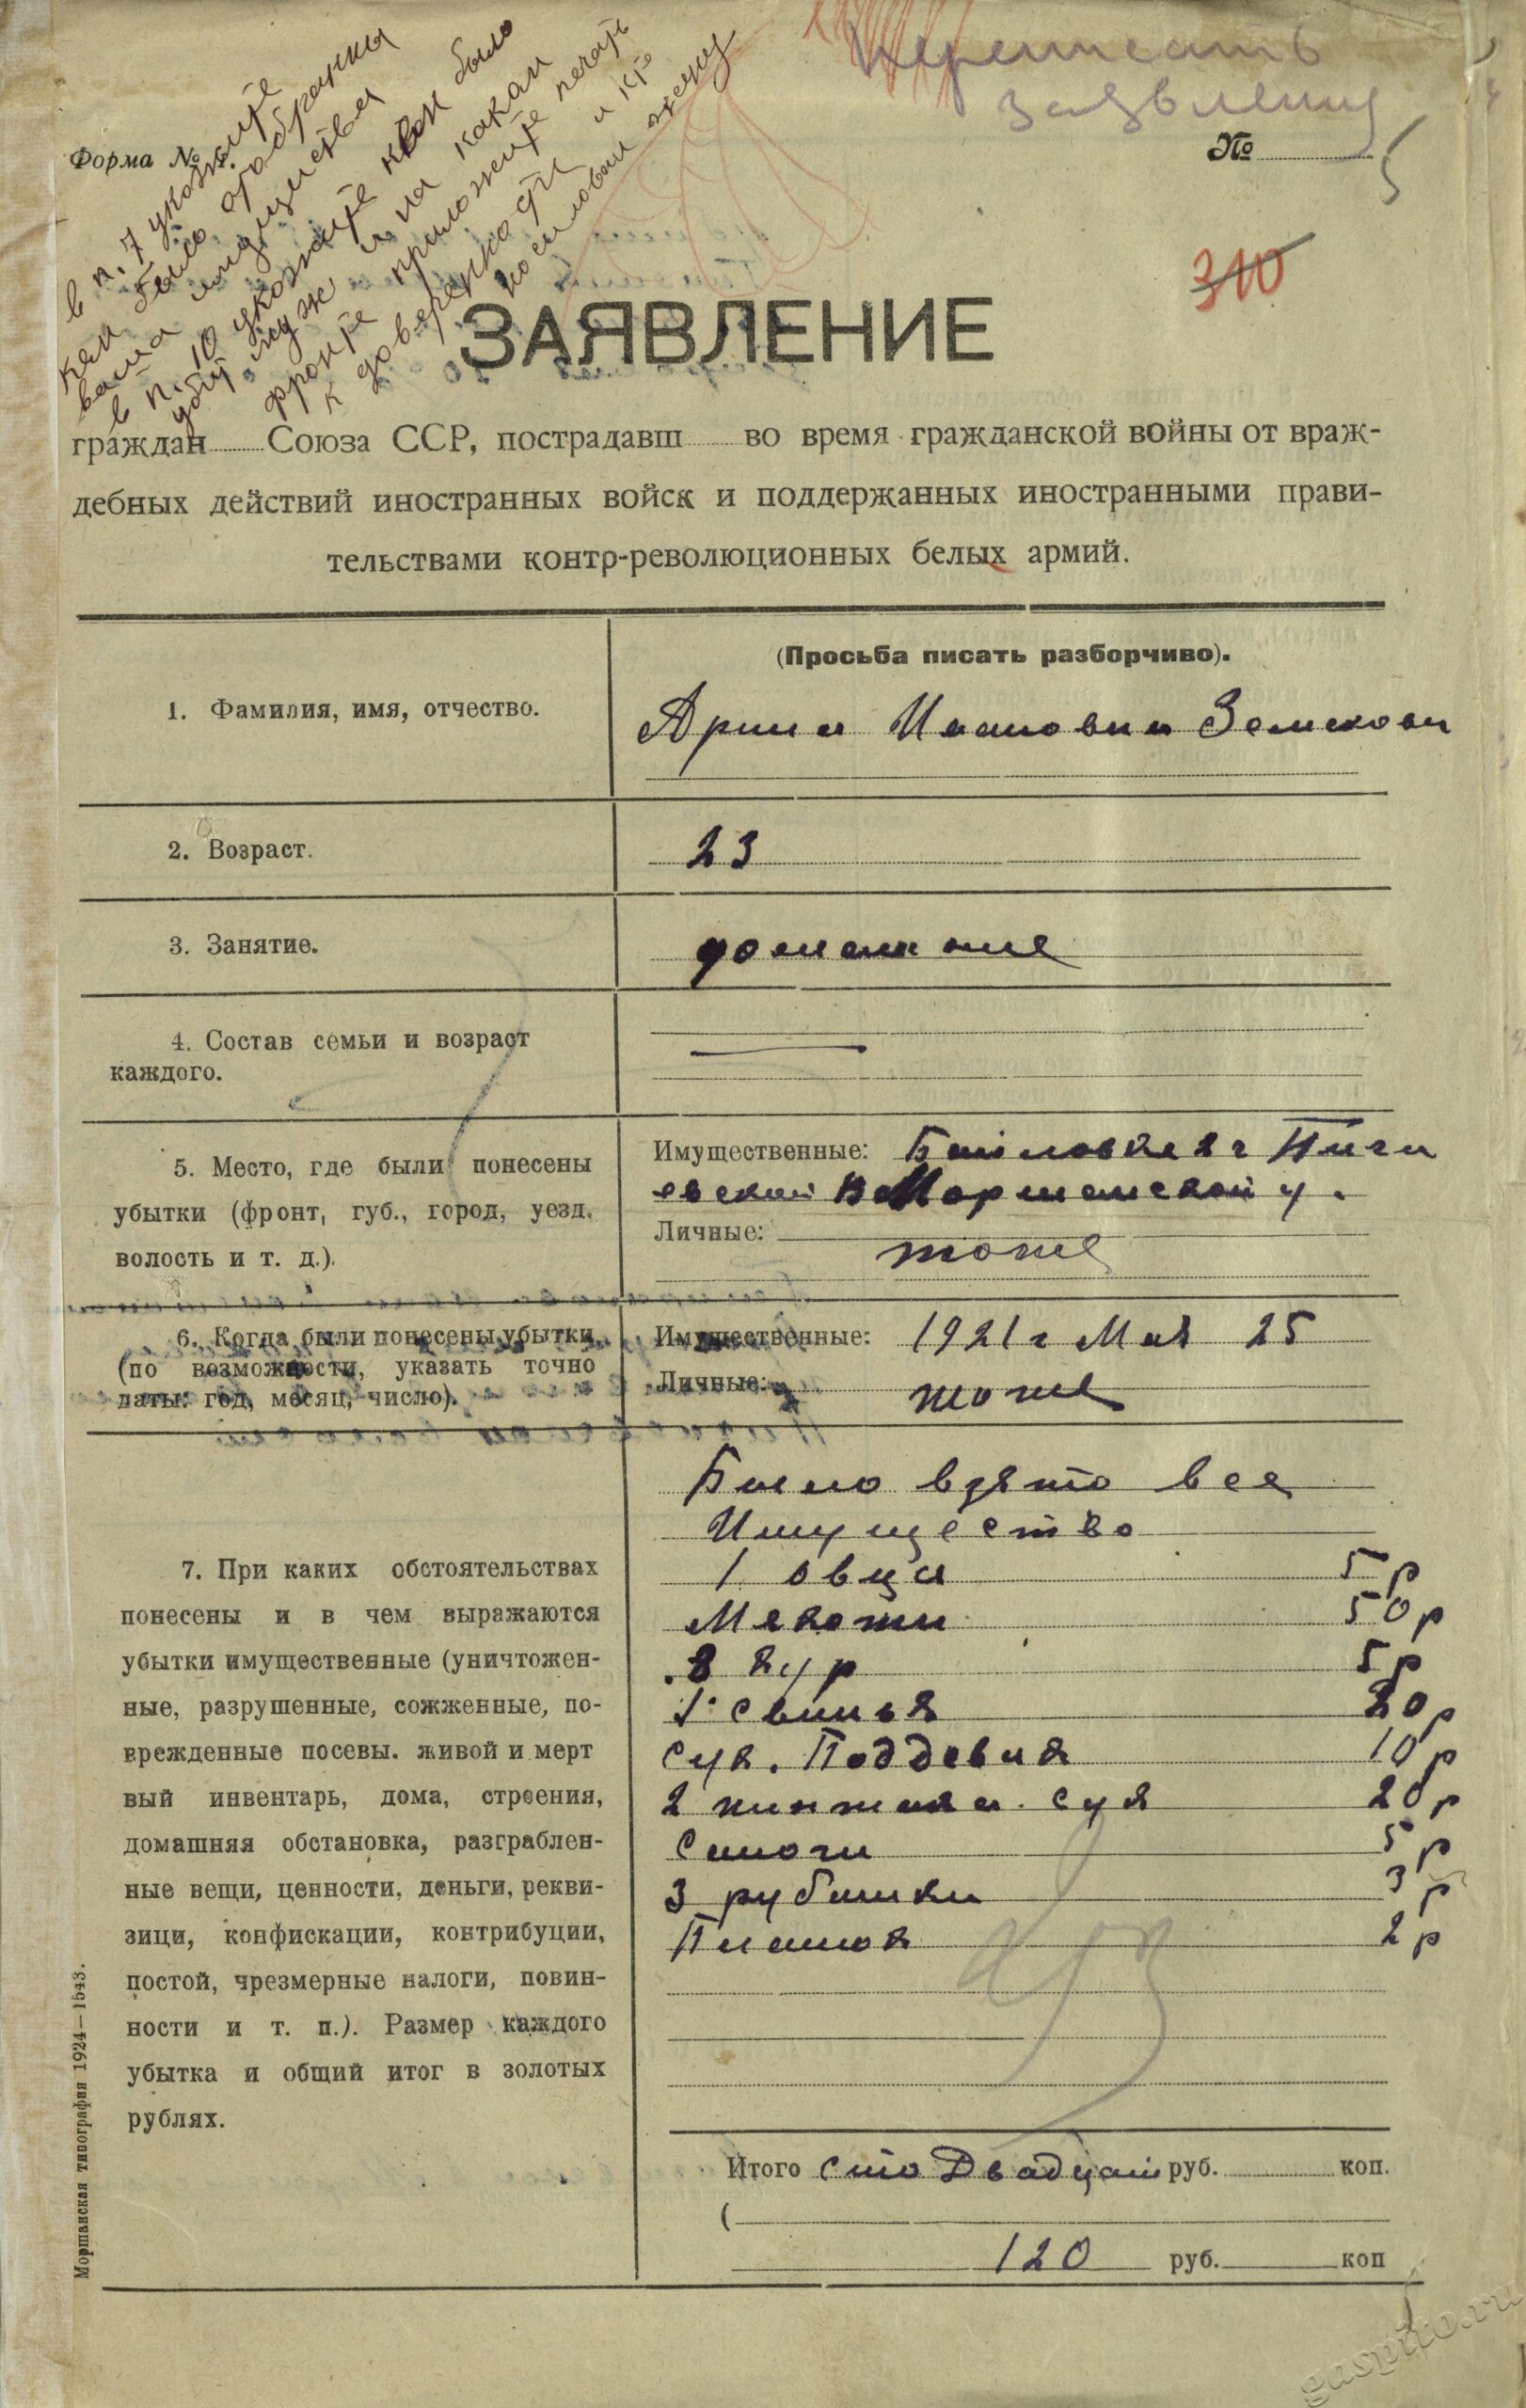 Переписать
заявление
Форма № 1.
№ 5
310
в п. 7 укажите
кем было отобрано
ваше имущество
в п. 10 укажите кем был
убит муж и на каком
фронте приложите печать
к доверенности и
ЗАЯВЛЕНИЕ
граждан Союза ССР, пострадавш во время гражданской войны от враж-
дебных действий иностранных войск и поддержанных иностранными прави-
тельствами контр-революционных белых армий.
(Просьба писать разборчиво).
1. Фамилия, имя, отчество.
Арина Ивановна Земскова
2. Возраст.
23
3. Занятие.
4. Состав семьи и возраст
каждого.
5. Место, где были понесены
убытки (фронт, губ., город, уезд,
волость и т. д.).
Имущественные:
евской в Моршанской у.
Личные:
тоже
6. Когда были понесены убытки
(по возможности, указать точно
даты: год, месяц, число).
Имущественные: 1921 г Мая 25
Личные: тоже
7. При каких обстоятельствах
понесены и в чем выражаются
убытки имущественные (уничтожен-
ные, разрушенные, сожженные, по-
врежденные посевы. живой и мерт
вый инвентарь, дома, строения,
домашняя обстановка, разграблен-
ные вещи, ценности, деньги, рекви-
зици, конфискации, контрибуции,
постой, чрезмерные налоги, повин-
ности и т. п.). Размер каждого
убытка и общий итог в золотых
рублях.
Было взято все
Имущество
1 овца 5 р
50 р
8 кур 5 р
1 свинья 20 р
сук. Поддевка 10 р
2 сук 20 р
Сапоги 5 р
3 рубашки 3 р
Платок 2 р
Итого сто Двадцат руб. коп.
(
120 руб. коп
Моршанская типография 1924—1543.
gaspito.ru